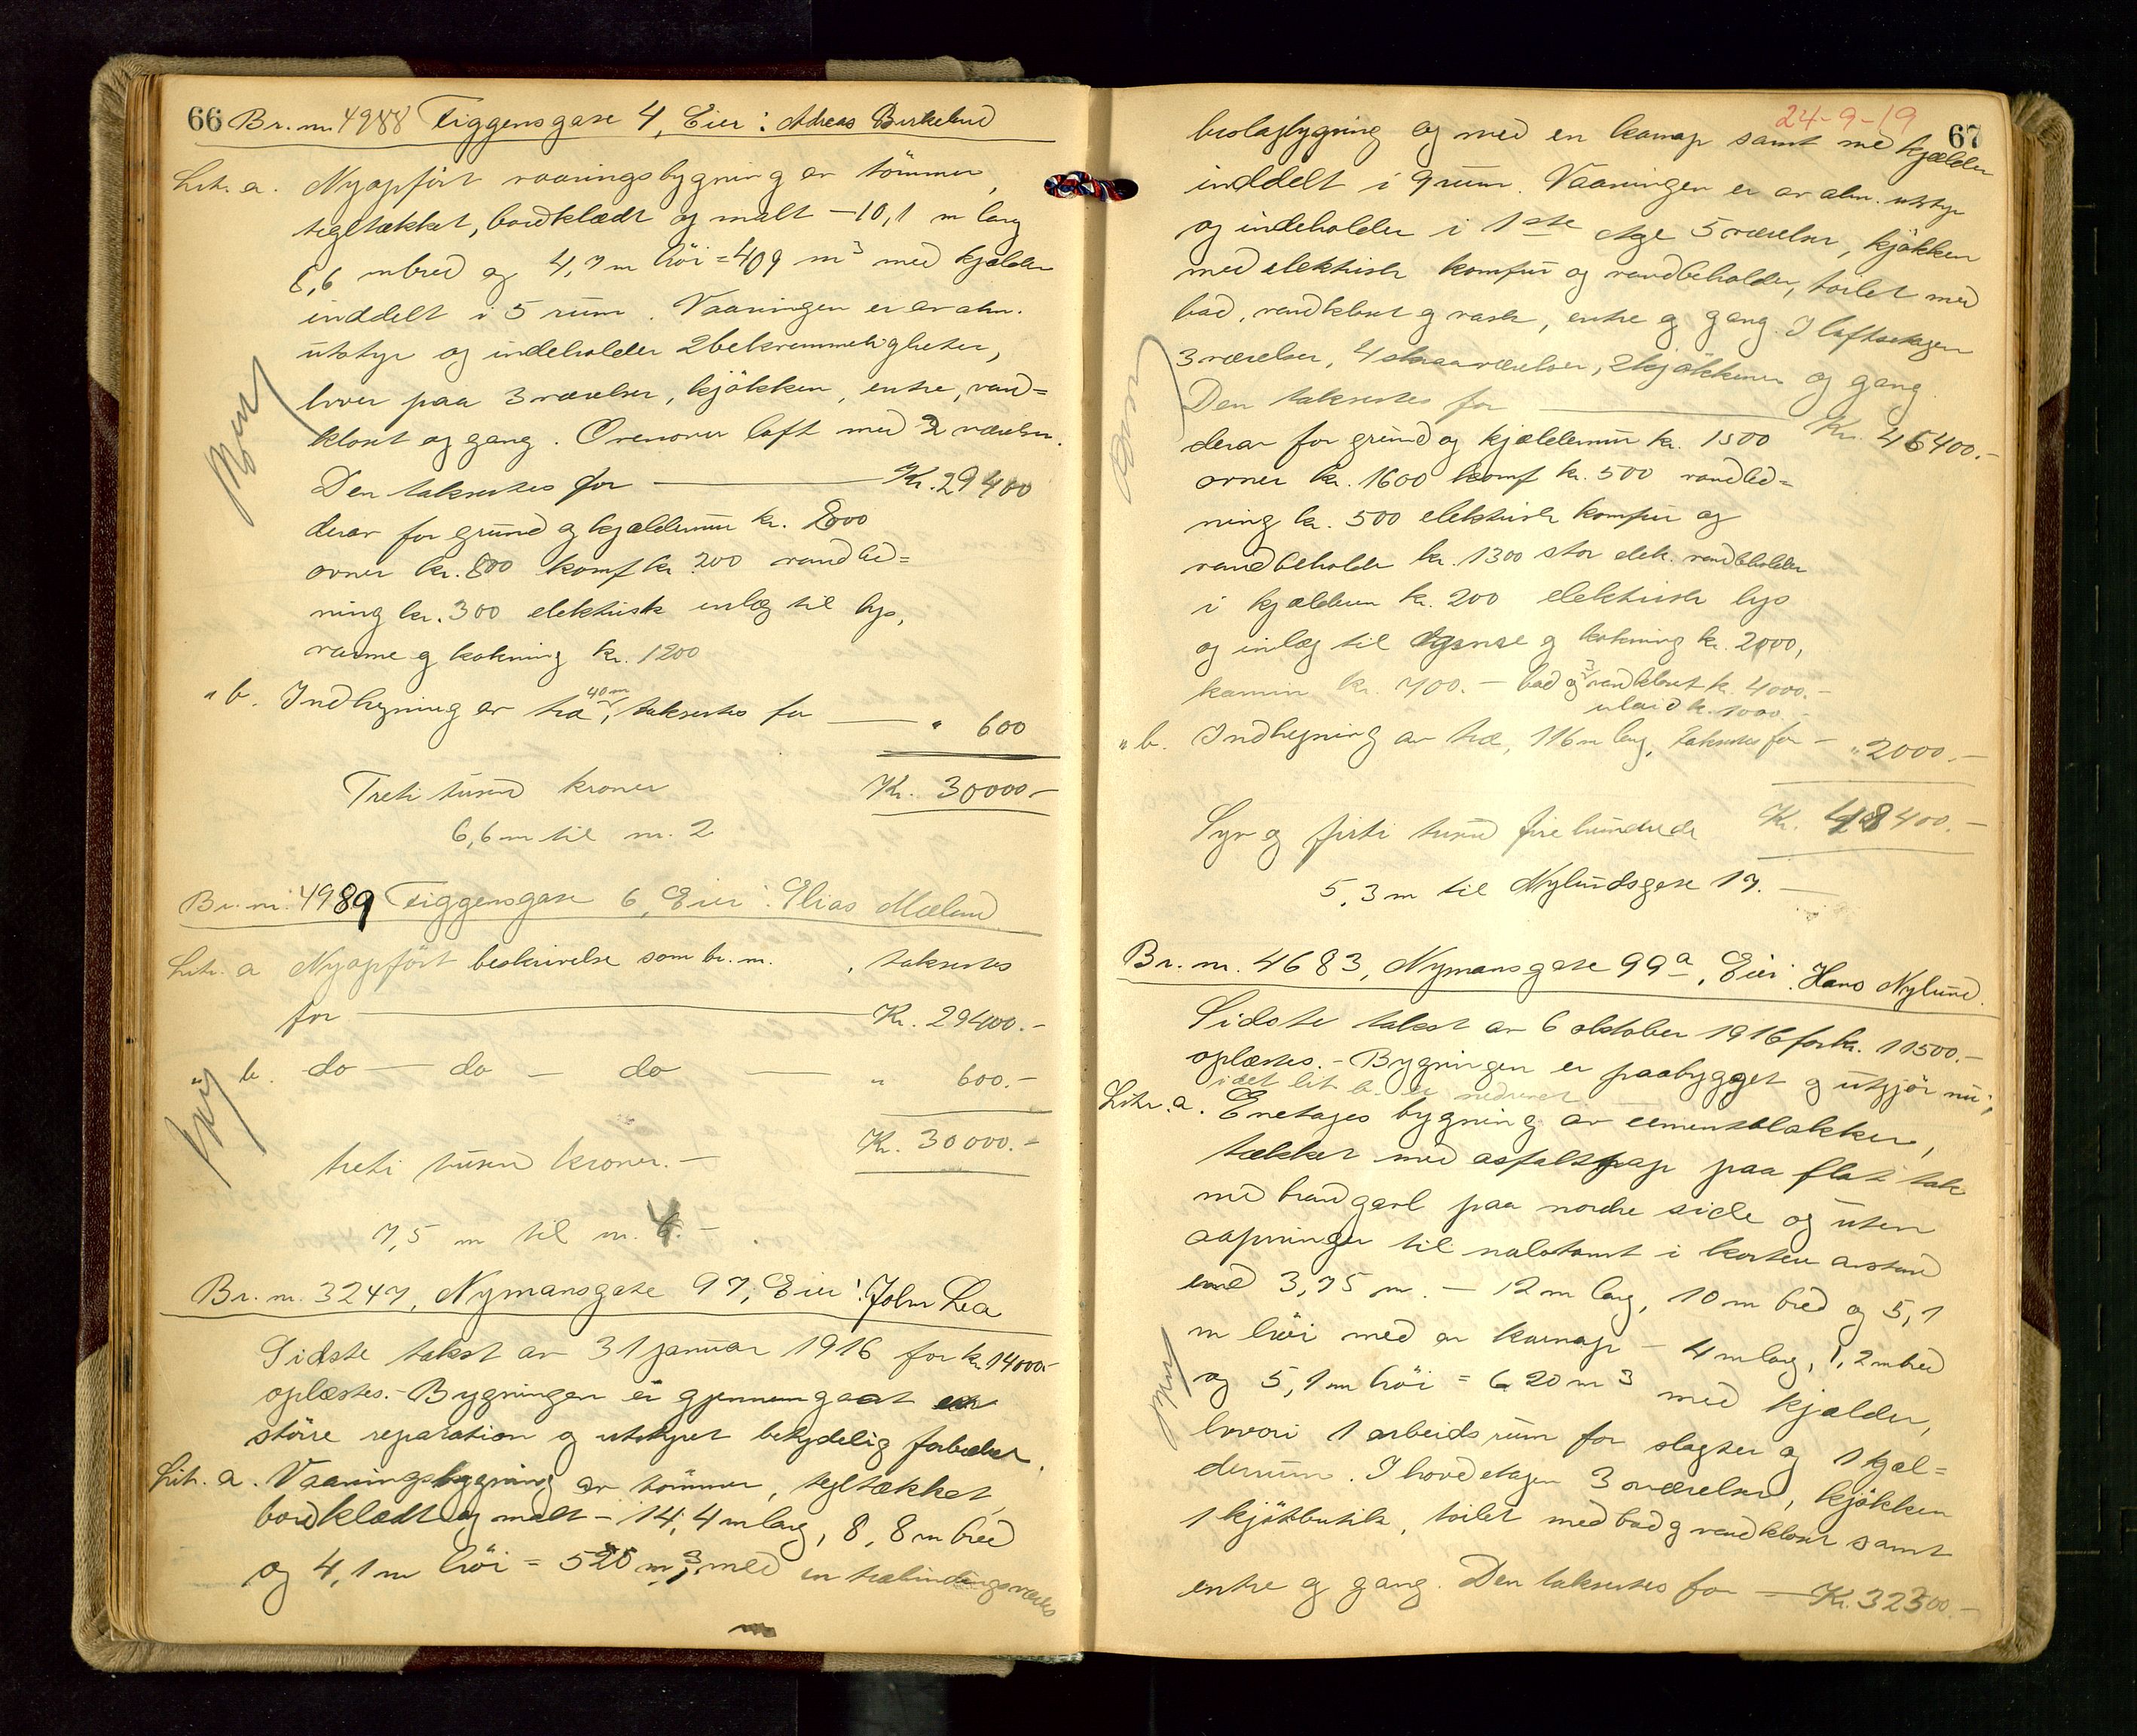 66 Br. nr. 4988 Tiggensgate 4, Eier: Andreas Birkelund
Litr. a. Nyopført vaaningsbygning av tømmer,
tegltækket, bordklædt og malt – 10,1 m lang
8,6 m bred og 4,7 m høi = 409 m³ med kjelder
inddelt i 5 rum. Vaaningen er av alm.
utstyr og indeholder 2 bekvemmeligheter,
hver paa 3 værelser, kjøkken, entre, vand=
klosett og gang. Ovenover loft med 2 værelser.
Den taksertes for — Kr. 29400
derav for grund og kjeldermur kr. 800
ovner kr. 800 komf kr 200 vandled=
ning kr. 300 elektrisk inlæg til lys,
varme og kokning kr. 1200
" b. Indhegning av træ, 40 m taksertes for — " 600
Treti tusen kroner Kr. 30000 –
6,6 m til nr. 2
Br. nr. 4989 Tiggensgate 6, Eier: Elias Mæland
Litr. a Nyopført beskrivelse som br. nr. , taksertes
for — Kr. 29400.–
" b. do — do – do — " 600.–
Kr. 30000.–
treti tusen kroner.–
7,5 m til nr. 4.–
Br. nr. 3247, Nymansgate 97, Eier: John Lea
Sidste takst av 31 januar 1916 for kr. 14000–
oplæstes.– Bygningen er gjennemgaat en
større reparation og utstyret betydelig forbedret.
Litr. a. Vaaningsbygning av tømmer, tegltækket
bordklædt og malt – 14,4 m lang, 8,8 m bred
og 4,1 m høi = 520 m³, med en træbindingsværks
24-9-19
67
beslagbygning og med en karnap samt med kjælder
inddelt i 9 rum. Vaaningen er av alm. utstyr
og indeholder i 1ste etage 5 værelser, kjøkken
med elektrisk komfur og vandbeholder, toilet med
bad, vandklosett og vask, entre og gang. I loftsetagen
3 værelser, 4 skraaværelser, 2 kjøkkener og gang.
Den taksertes for — Kr. 46400.–
derav for grund og kjeldermur kr. 1500
ovner kr. 1600 komf kr. 500 vandled=
ning kr. 500 elektrisk komfur og
vandbeholder kr. 1300 stor elek. vandbeholder
i kjelderen kr. 200 elektrisk lys
og inlæg til varme og kokning kr. 2000,
kamin kr. 700.– bad og 3 vandklosett kr. 4000.–
kr. 1000.–
" b. Indhegning av træ, 116 m lang, taksertes for – " 2000.–
Syv og firti tusen fire hundrede Kr. 48400.–
5,3 m til Nylundsgate 17.–
Br. nr. 4683, Nymansgate 99a, Eier: Hans Nylund.
Sidste takst av 6 oktober 1916 for kr. 11500.–
oplæstes.– Bygningen er paabygget og utgjør nu;
idet lit b. er nedrevet
Litr. a. Enetages bygning av cementblokker,
tækket med asfaltpap paa flatt tak
med brandgavl paa nordre side og uten
aapninger til nabotomt i kortere avstand
end 3,75 m. – 12 m lang, 10 m bred og 5,1
m høi med en karnap – 4 m lang, 1,2 m bred
og 5,1 m høi = 620 m³ med kjelder,
hvori 1 arbeidsrum for slagter og 1 kjel=
derrum. I hovedetagen 3 værelser, kjøkken
1 kjøtbutik, toilet med bad og vandklosett samt
entre og gang. Den taksertes for – Kr. 32300.–